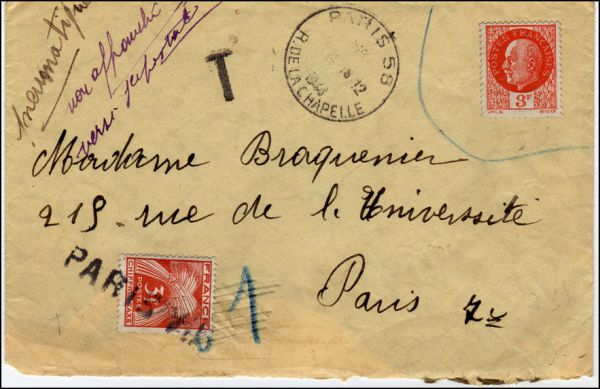 Pneumatique
non affranchi
T
PARIS 58
R. DE LA CHAPELLE
18 12
1944
POSTES FRANÇAISES
3F
Madame Braquenier
215 rue de l'Université
Paris 7e
FRANCE
3F
POSTES
CHIFFRE-TAXE
PARIS
1